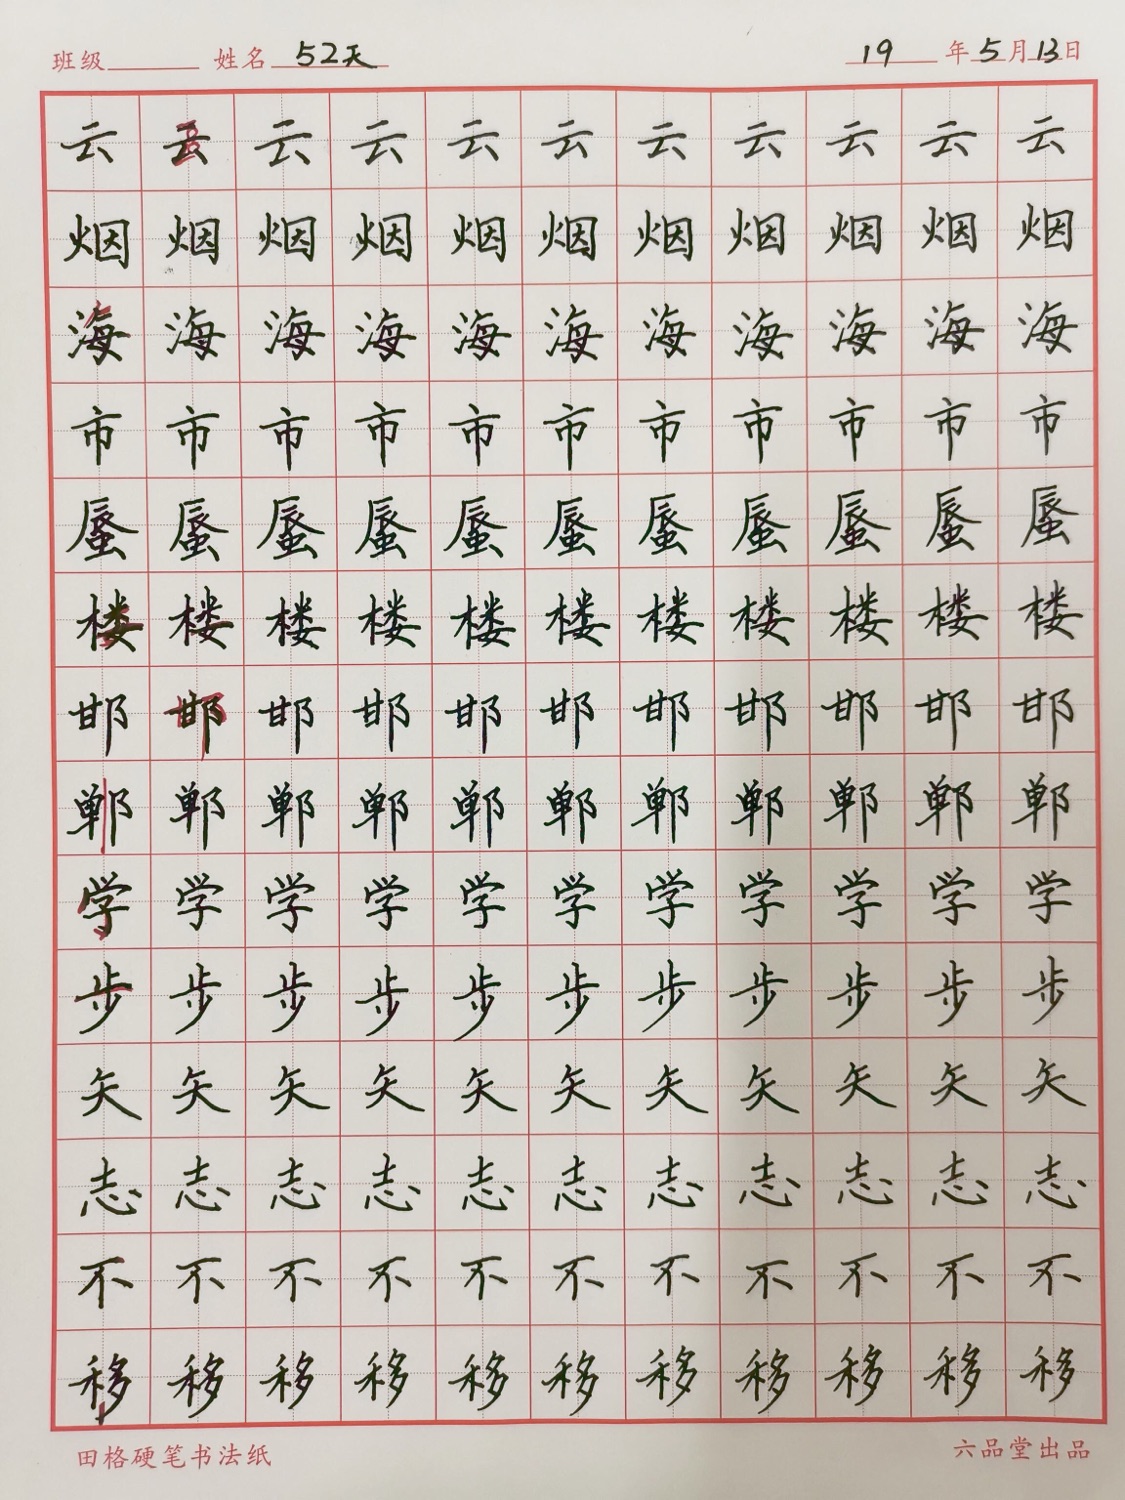 班级 姓名 52天 19 年 5 月 13 日
云 云 云 云 云 云 云 云 云 云 云
烟 烟 烟 烟 烟 烟 烟 烟 烟 烟 烟
海 海 海 海 海 海 海 海 海 海 海
市 市 市 市 市 市 市 市 市 市 市
蜃 蜃 蜃 蜃 蜃 蜃 蜃 蜃 蜃 蜃 蜃
楼 楼 楼 楼 楼 楼 楼 楼 楼 楼 楼
邯 邯 邯 邯 邯 邯 邯 邯 邯 邯 邯
郸 郸 郸 郸 郸 郸 郸 郸 郸 郸 郸
学 学 学 学 学 学 学 学 学 学 学
步 步 步 步 步 步 步 步 步 步 步
矢 矢 矢 矢 矢 矢 矢 矢 矢 矢 矢
志 志 志 志 志 志 志 志 志 志 志
不 不 不 不 不 不 不 不 不 不 不
移 移 移 移 移 移 移 移 移 移 移
田格硬笔书法纸 六品堂出品